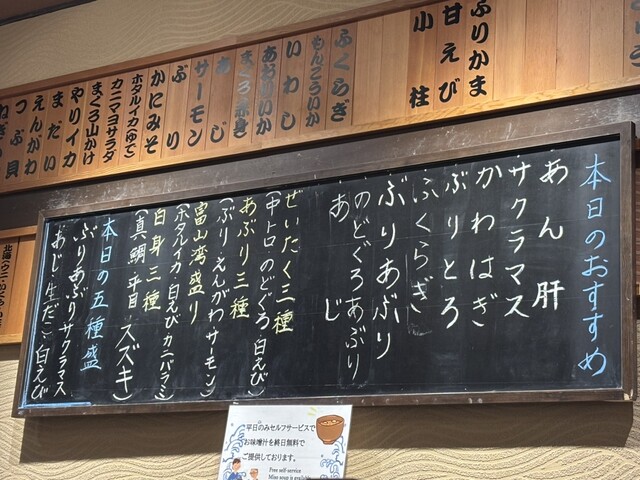 ふりかま
甘えび
小柱
ふくらぎ
もんごういか
いわし
あおりいか
まぐろ赤身
あじ
サーモン
ぶり
かにみそ
ホタルイカ(ゆで)
カニマヨサラダ
まぐろ山かけ
やりイカ
まだい
えんがわ
つぶ貝
本日のおすすめ
あん肝
サクラマス
かわはぎ
ぶりとろ
ふくらぎ
ぶりあぶり
のどぐろあぶり
あじ
ぜいたく三種
(中トロ のどぐろ 白えび)
あぶり三種
(ぶり えんがわ サーモン)
富山湾盛り
(ホタルイカ 白えび カニバマシ)
白身三種
(真鯛 平目 スズキ)
本日の五種盛
ぶりあぶり サクラマス
あじ 生だこ 白えび
平日のみセルフサービスで
お味噌汁を終日無料で
ご提供しております。
Free self-service
Miso soup is available